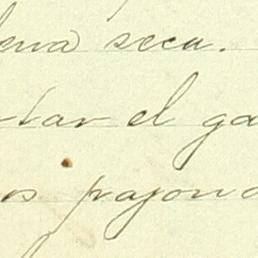 lena seca.
rtar el ga
os pajona